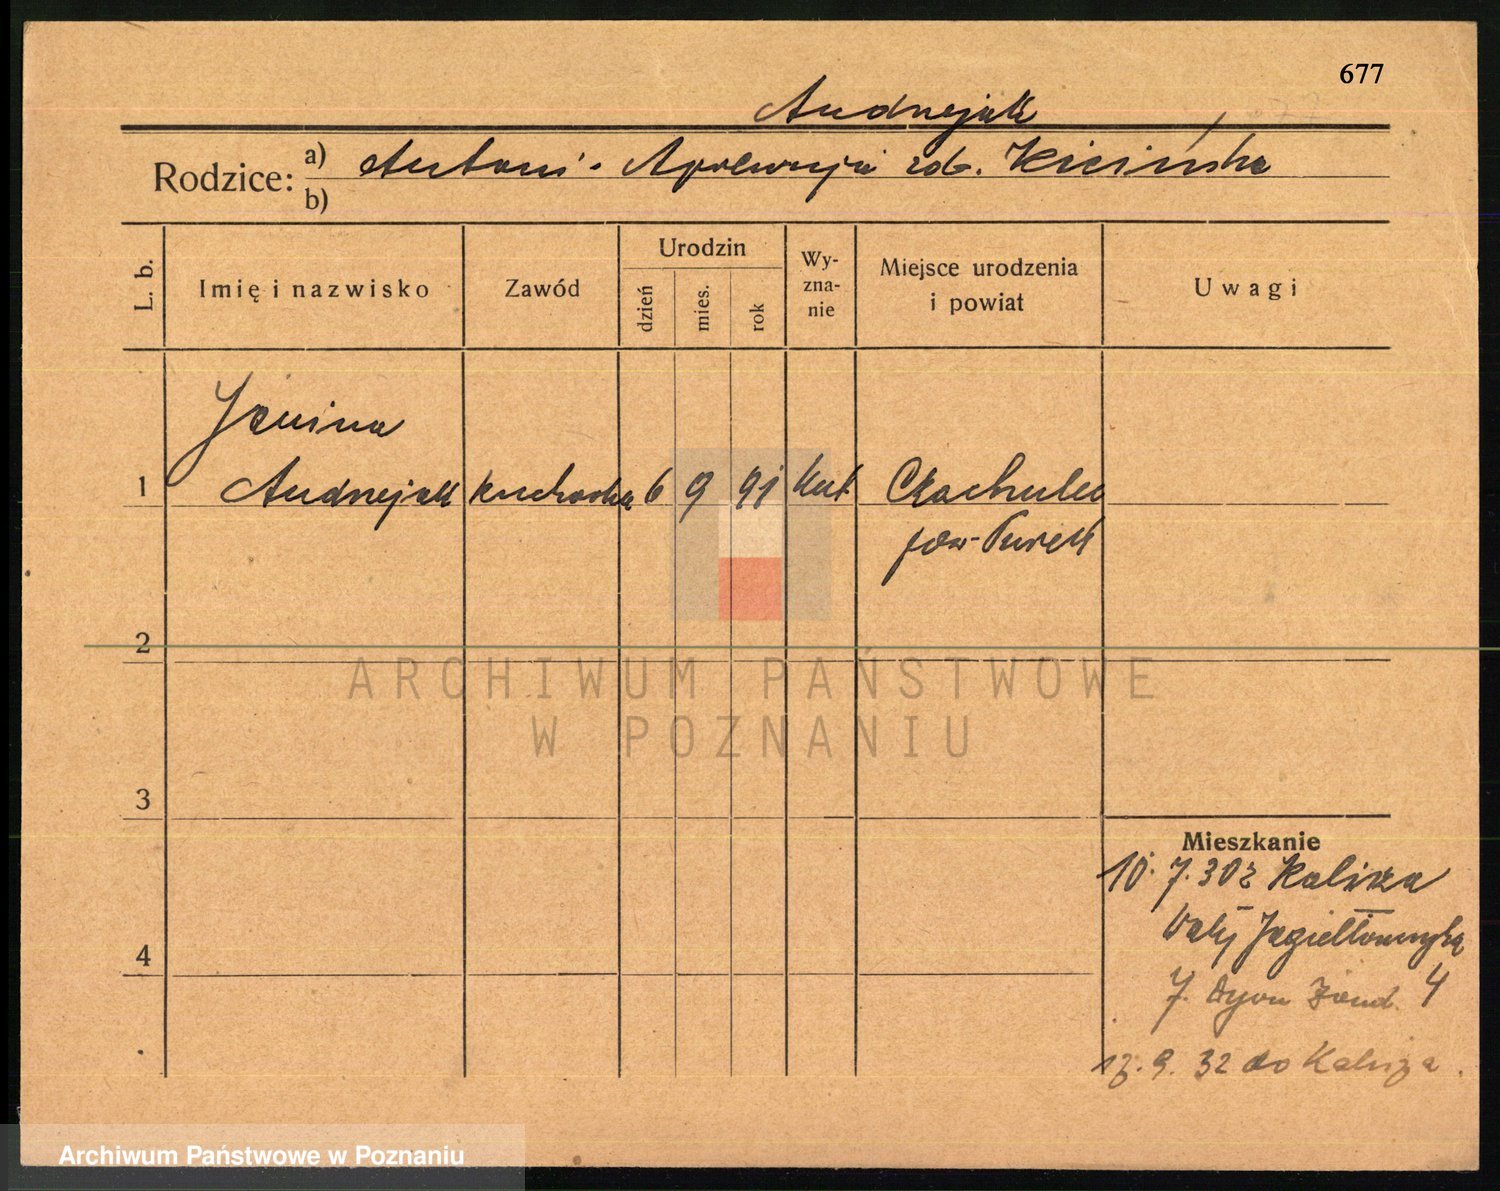 677
Andrzejak
Rodzice: a) Antoni - Apolonija rob. Kicińska
b)
L. b.
Imię i nazwisko
Zawód
Urodzin
dzień
mies.
rok
Wy-
zna-
nie
Miejsce urodzenia
i powiat
Uwagi
Janina
1 Andrzejak kucharka 6 9 91 kat. Czachulec
pow. Turek
2
ARCHIWUM PAŃSTWOWE
W POZNANIU
3
Mieszkanie
10. 7. 30 z Kalisza
Wały Jagiellońskie
4
7. Dyon Żand. 4
12. 9. 32 do Kalisza.
Archiwum Państwowe w Poznaniu